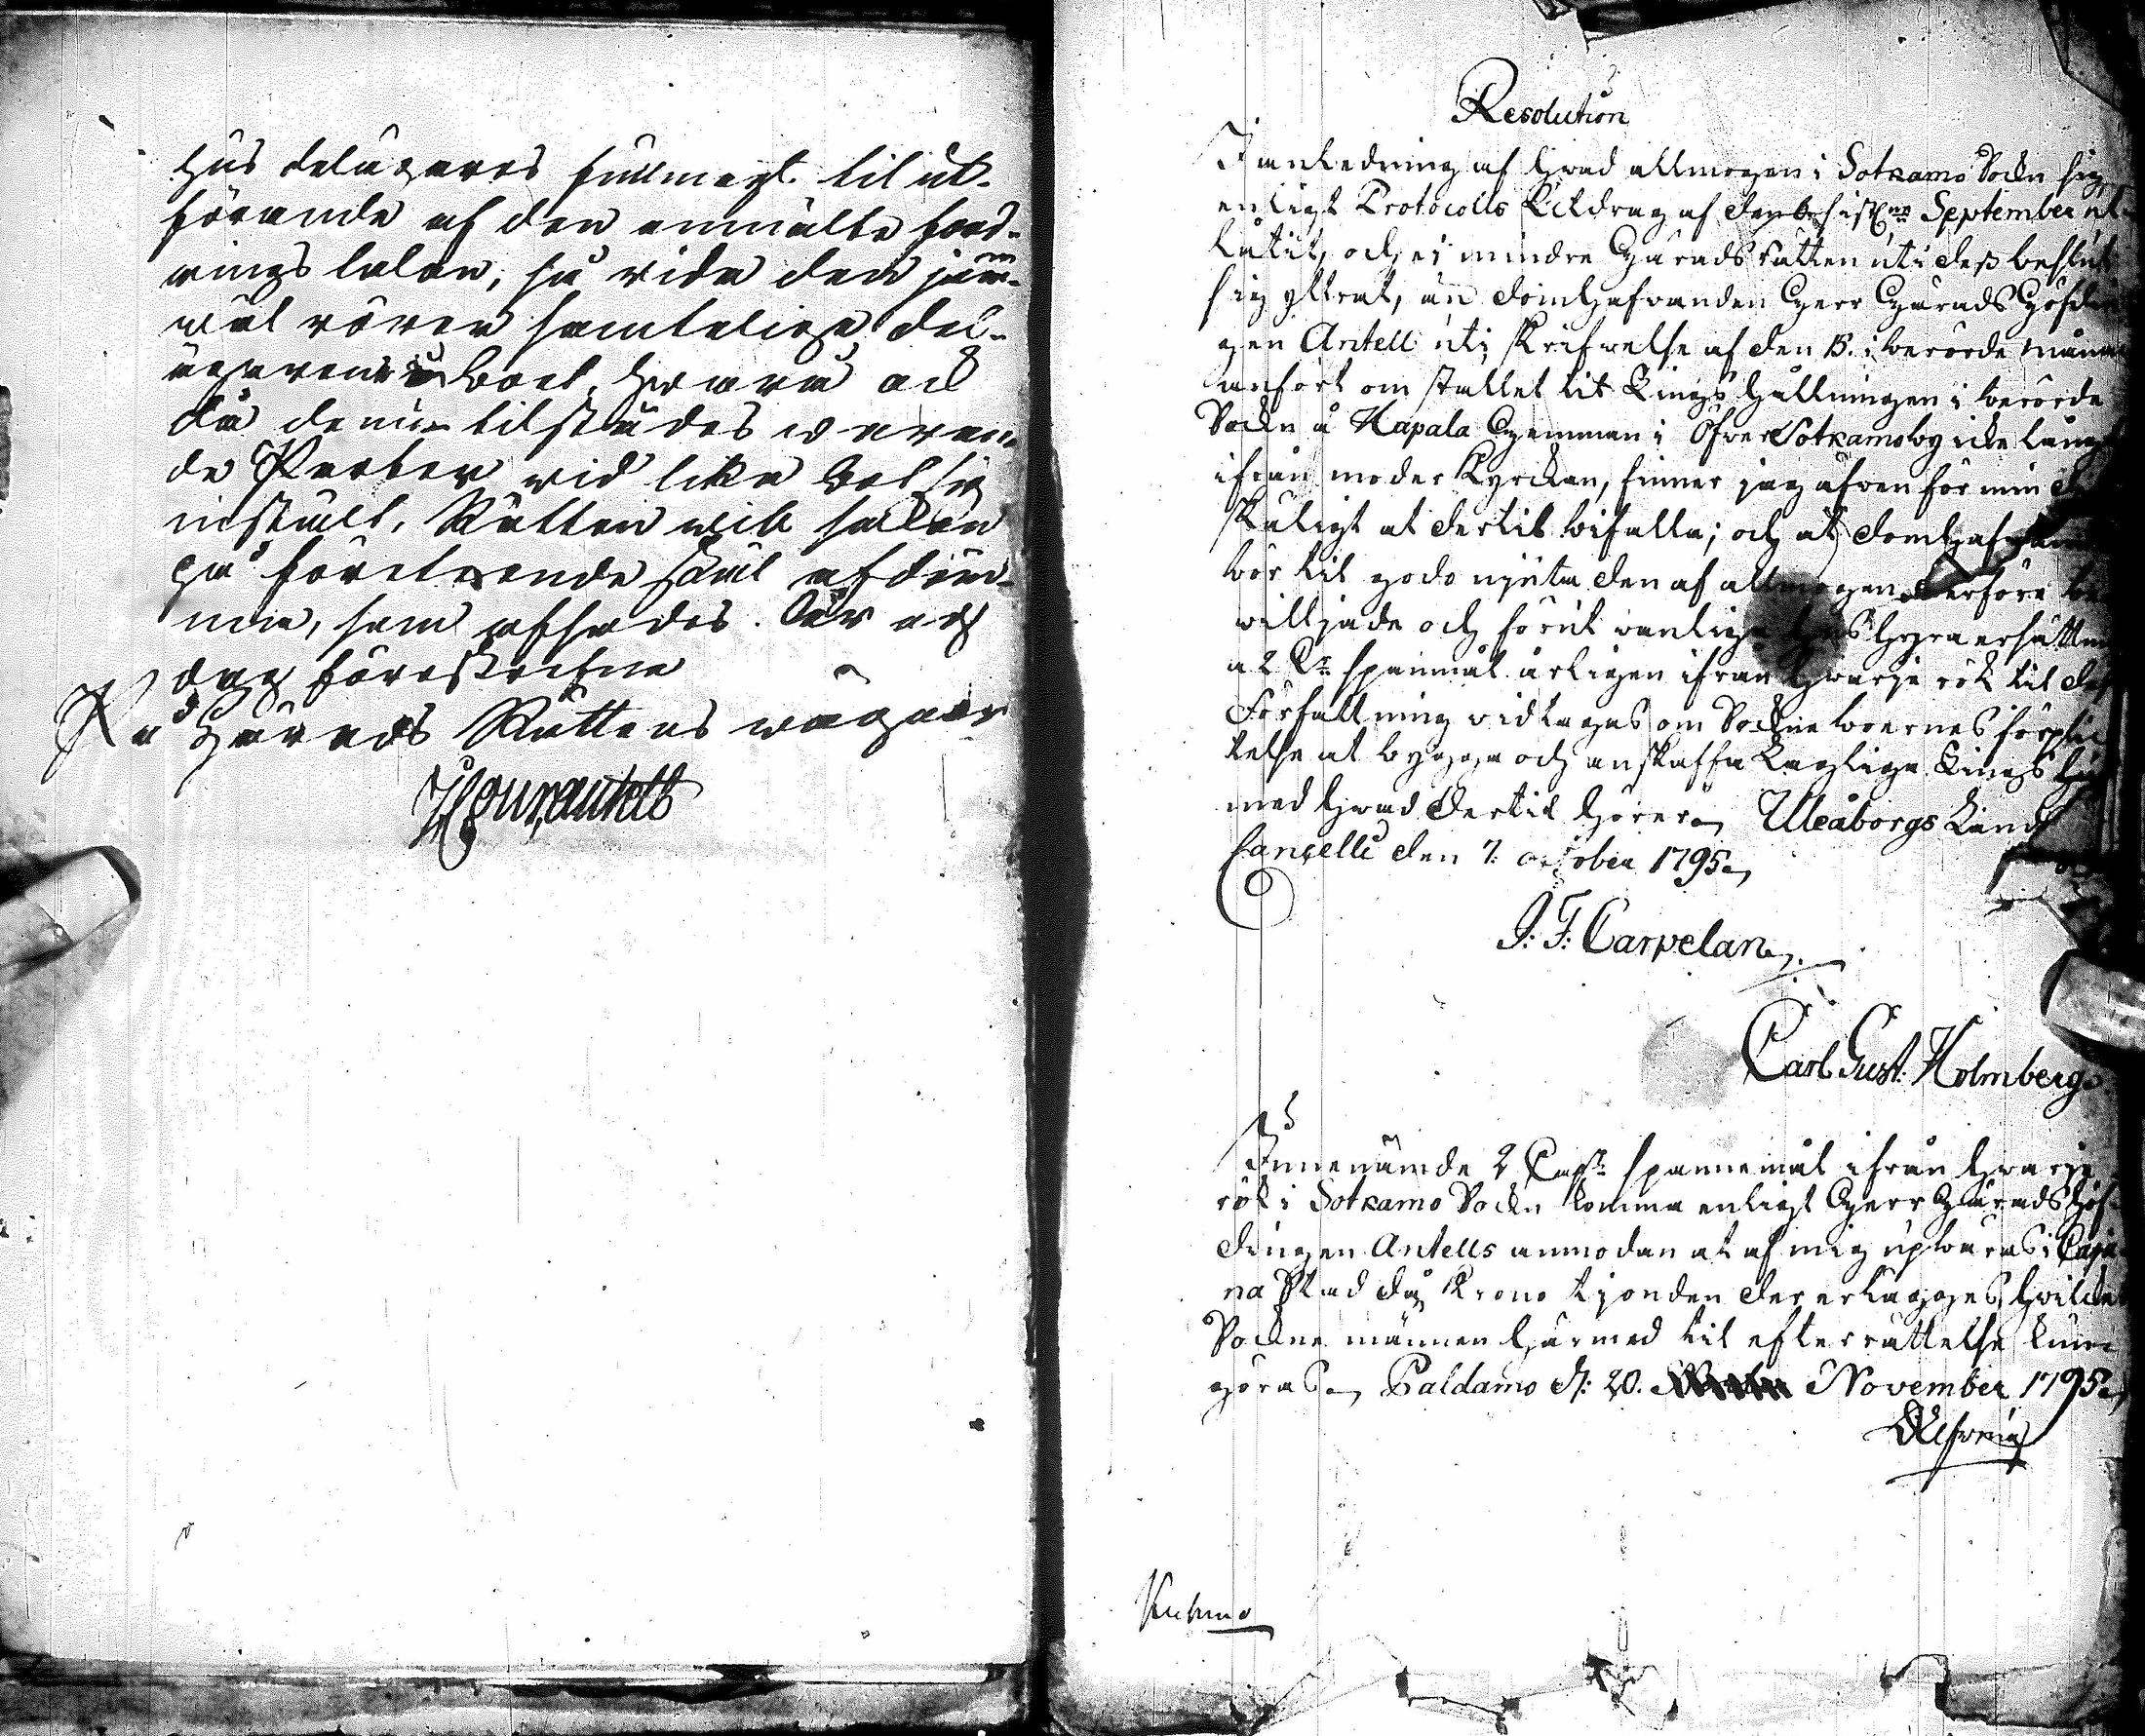 hus delägares fullmagt til ut-
förande af den anmälte ford-
rings talan, så vida den jäm-
wäl rörer samtelige del-
ägarena i boet, hwaraf och
då de nu tilstädes waran-
de Parter vid lika bot sig
instält. Rätten wil saken
på företeende skäl afdöm-
ma, som afsades. År och
dag föreskrefne
På Härads Rättens wägnar
Resolution
I anledning af hwad allmogen i Sotkamo Sockn sig
enligt Protocolls Utdrag af den sistl. September ut-
låtit, och ej mindre Häradsrätten uti dess beslut
sig yttrat, än Domhafvanden Herr Häradshöfdin
gen Antell uti skrifwelse af den 15. i berörde månad
anfört om stället til Tings hållningen i berörde
Sockn å Hapala Hemman i Öfver Sotkamo by icke långt
ifrån moder Kyrckan, finner jag äfven för min del
skäligt at dertil bifalla; och at Domhafvanden
bör til godo njuta den af allmogen derföre be
willjade och förut vanliga Tings Hyra ersättning
a 2 Cr. spanmål årligen ifrån hwarje rök til dess
Författning vidtages om Sockne boernes förplic
telse at bygga och anskaffa Laglige Tings Hus
med hwad dertil hörer. Uleåborgs Lands
Cancelli den 7. october 1795.
J. F. Carpelan
Carl Gust. Holmberg
Innenämde 2 Capr. spannemål ifrån hwarje
rök i Sotkamo Sockn komma enligt Herr Häradshöf-
dingen Antells anmodan at af mig upbäras i Caja
na Stad då Krono tjonden der erlägges, hvilcket
Sockne männen härmed til efterrättelse kun-
göras. Paldamo d. 20. November 1795.
Kuhmo